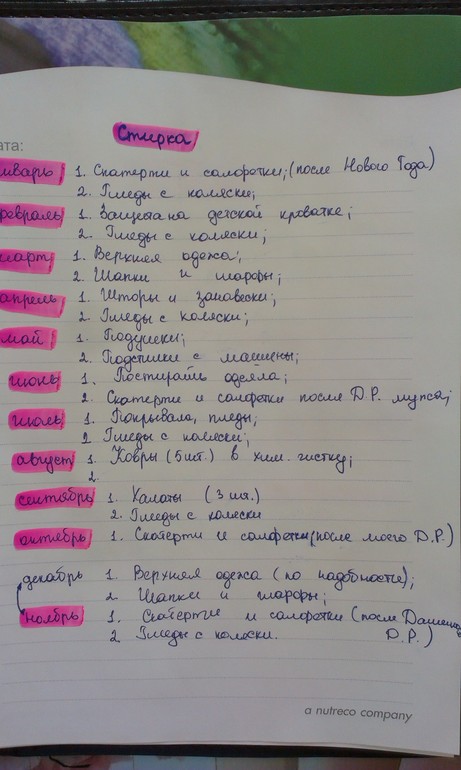 ата:
Стирка
январь 1. Скатерти и салфетки; (после Нового Года)
2. Пледы с коляски;
февраль 1. Защита на детской кроватке;
2. Пледы с коляски;
март 1. Верхняя одежа;
2. Шапки и шарфы;
апрель 1. Шторы и занавески;
2. Пледы с коляски;
май 1. Подушки;
2. Подстилки с машины;
июнь 1. Постирать одеяла;
2. Скатерти и салфетки после Д.Р. мужа;
июль 1. Покрывала, пледы;
2. Пледы с коляски;
август 1. Ковры (5 шт.) в хим. чистку;
2.
сентябрь 1. Халаты (3 шт.)
2. Пледы с коляски
октябрь 1. Скатерти и салфетки (после моего Д.Р.)
декабрь 1. Верхняя одежа (по надобности);
2 Шапки и шарфы;
ноябрь 1. Скатерти и салфетки (после Дашиного
2 Пледы с коляски. Д.Р.)
a nutreco company